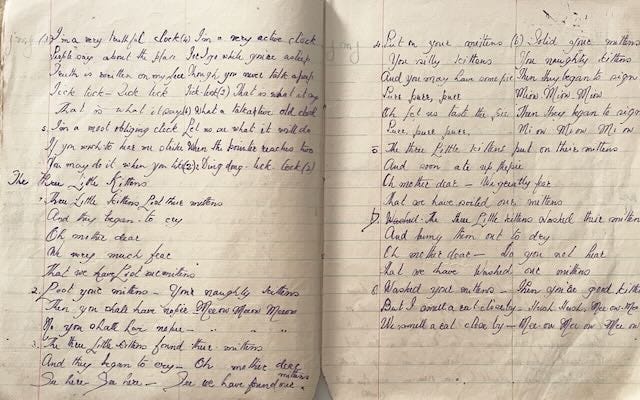 (1) I'm a very truthful clock (2) I'm a very active clock
People say about the place For I go while you're asleep
Truth is written on my face Though you never take a peep
Tick tock - Tick tock Tick tock (2) That is what it say
That is what it says (4) What a talkative old clock
2. I'm a most obliging clock Let us see what it will do
If you wish to hear me chime When the pointer reaches two
You may do it when you like (2): Ding dong - tick tock (2)
The Three Little Kittens
1. Three Little Kittens Lost their mittens
And they began to cry
Oh mother dear
We very much fear
That we have Lost our mittens
2. Lost your mittens - Your naughty kittens
Then you shall have no pie Meeow Meeow Meeow
No you shall have no pie - " " "
3. The three Little kittens found their mittens
And they began to cry - Oh mother dear
See here - See here - See we have found our mittens
4. Put on your mittens (6) Soiled your mittens
You silly kittens You naughty kittens
And you may have some pie Then they began to sign
Purr purr, purr Miow Miow Miow
Oh let us taste the pie Then they began to sign
Purr, purr purr, Miow Miow Miow
5. The three Little kittens put on their mittens
And soon ate up the pie
Oh mother dear - We greatly fear
That we have soiled our mittens
Washed The three Little kittens washed their mittens
And hung them out to dry
Oh mother dear - Do you not hear
that we have Washed our mittens
6. Washed your mittens - Then you're good kitte
But I smell a rat closeby - Hush Hush, Mee-ow Mee-o
We smell a rat close by - Mee-ow Mee ow Mee ow